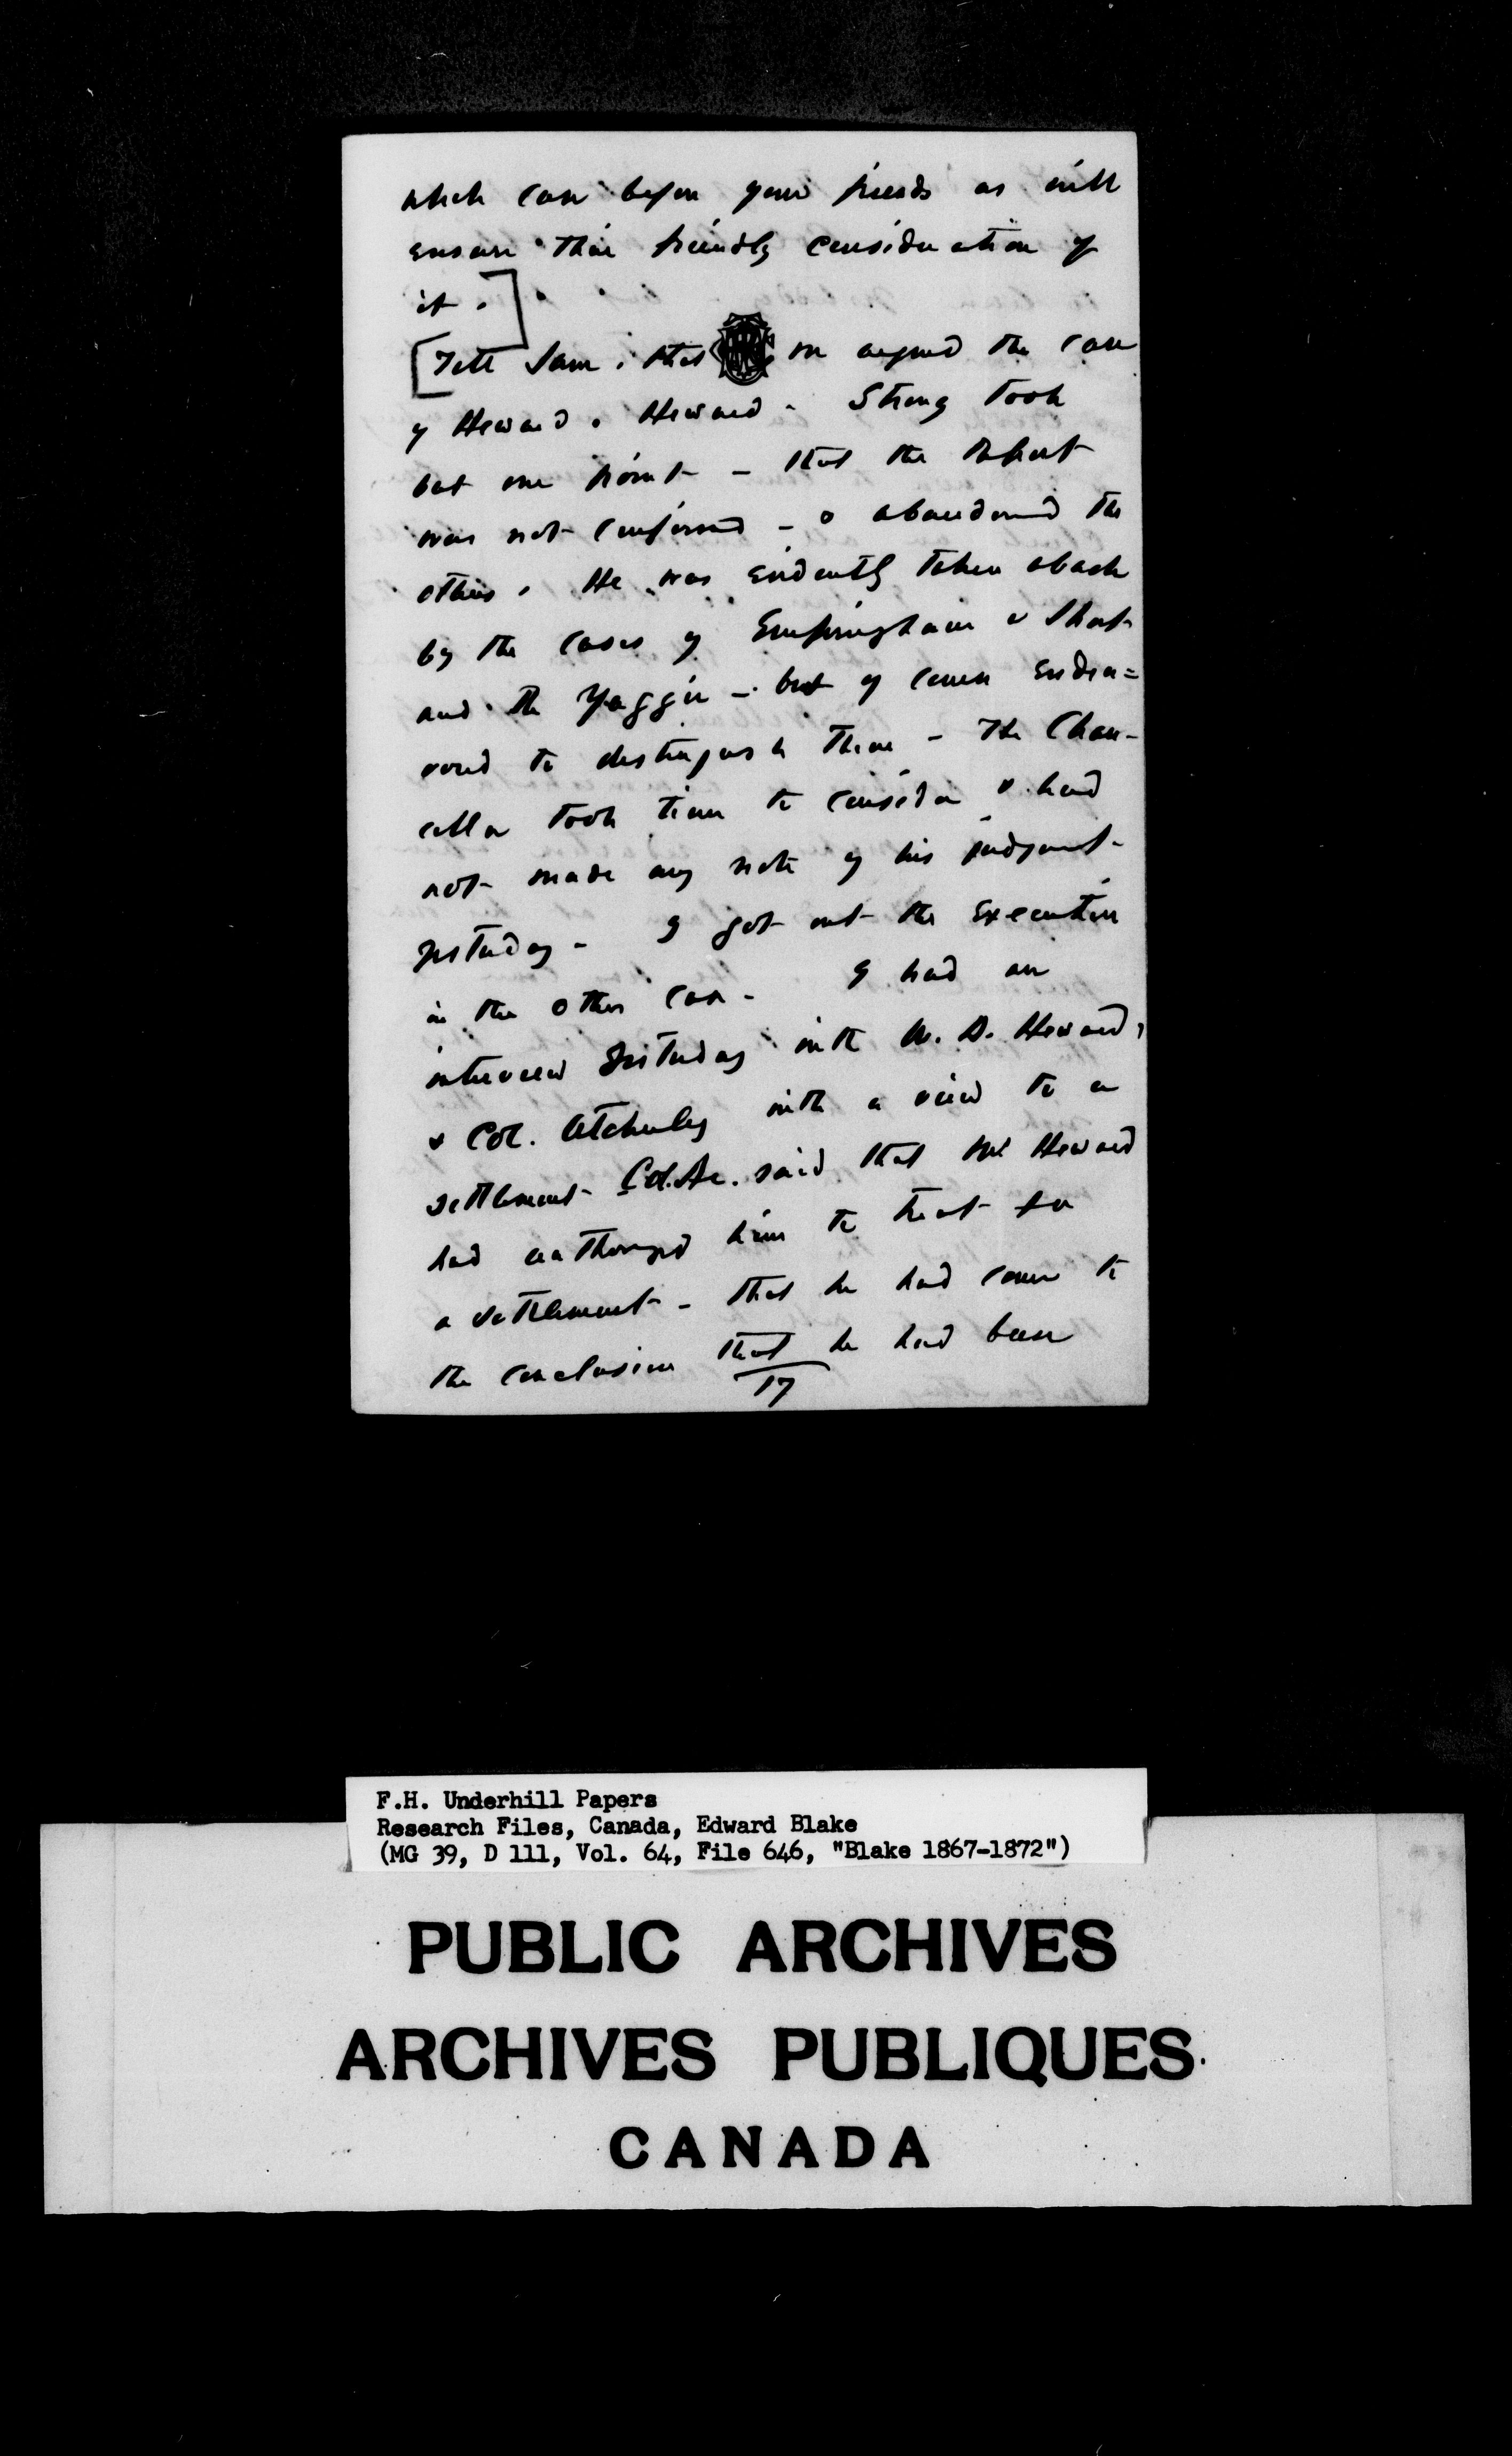 which case before your friends as will
ensure their friendly consideration of
it.]
[Tell Sam. that we argued the case
of Heward v. Heward - Strong took
but one point - that the Report
was not confirmed - & abandoned the
others. He was evidently taken aback
by the cases of Empringham v Short
and the Yaggie - but of course endea=
vored to distinguish them - The Chan-
cellor took time to consider & had
not made any note of his judgment
yesterday - I got out the execution
in the other case - I had an
interview yesterday with W. D. Heward,
& Col. with a view to a
settlement - Col. said that Mr Heward
had authorized him to treat for
a settlement - that he had come to
the conclusion that he had been
17
F.H. Underhill Papers
Research Files, Canada, Edward Blake
(MG 39, D 111, Vol. 64, File 646, "Blake 1867-1872")
PUBLIC ARCHIVES
ARCHIVES PUBLIQUES
CANADA